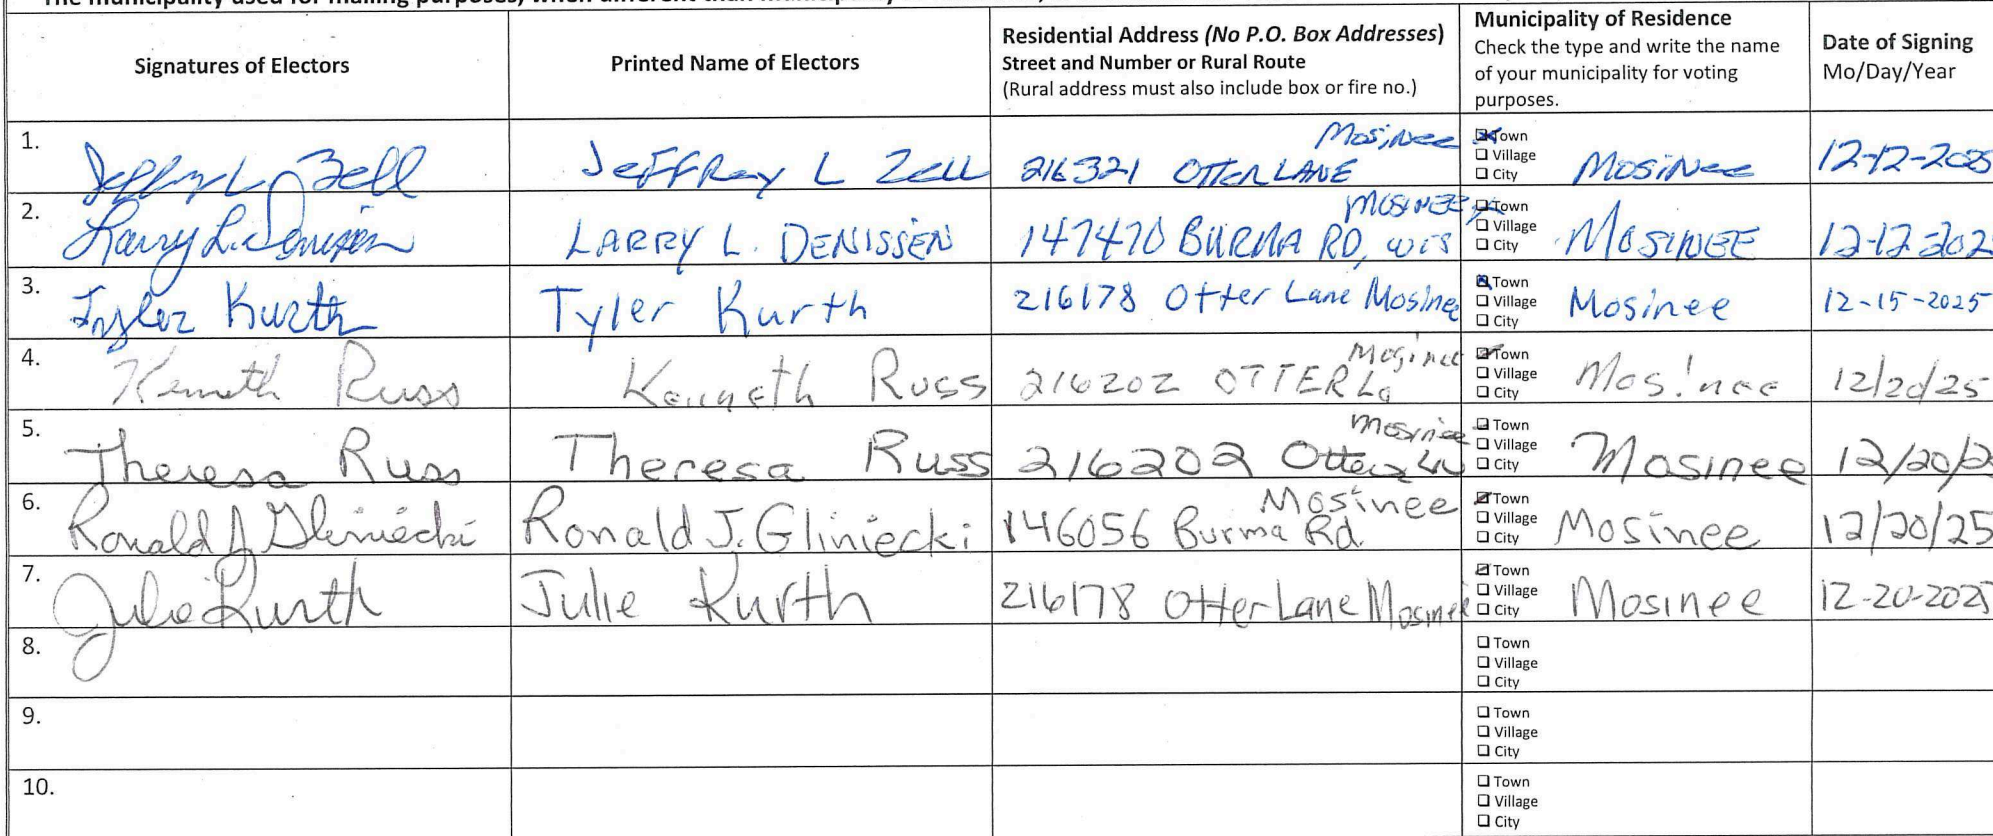 Signatures of Electors
Printed Name of Electors
Residential Address (No P.O. Box Addresses)
Street and Number or Rural Route
(Rural address must also include box or fire no.)
Municipality of Residence
Check the type and write the name
of your municipality for voting
purposes.
Date of Signing
Mo/Day/Year
1.
Jeffrey L Zell
JeFFRey L Zell
Mosinee
216321 OTTER LANE
Town
Village
City
Mosinee
12-12-2025
2.
Larry L. Denissen
LARRY L. DENISSEN
MOSINEE
147470 BURMA RD, WIS
Town
Village
City
MOSINEE
12-12-202
3.
Tyler Kurth
Tyler Kurth
216178 Otter Lane Mosinee
Town
Village
City
Mosinee
12-15-2025
4.
Kenneth Russ
Kenneth Russ
Mosinee
216202 OTTER Ln
Town
Village
City
Mosinee
12/20/25
5.
Theresa Russ
Theresa Russ
Mosinee
216202 Otter Ln
Town
Village
City
Mosinee
12/20/2
6.
Ronald J Gliniecki
Ronald J. Gliniecki
Mosinee
146056 Burma Rd.
Town
Village
City
Mosinee
12/20/25
7.
Julie Kurth
Julie Kurth
216178 Otter Lane Mosinee
Town
Village
City
Mosinee
12-20-2025
8.
Town
Village
City
9.
Town
Village
City
10.
Town
Village
City